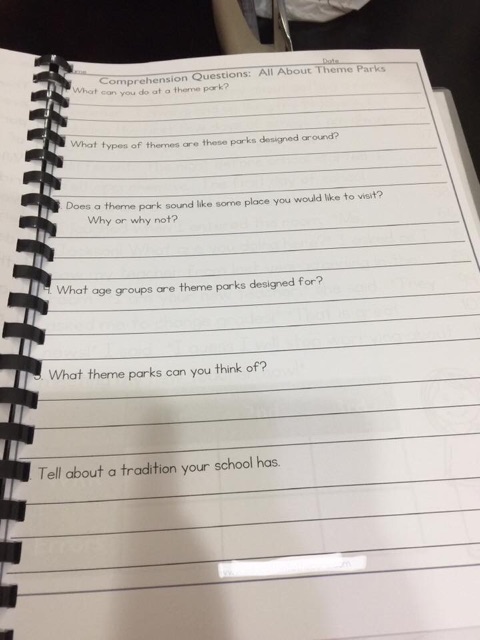 Date
Comprehension Questions: All About Theme Parks
What can you do at a theme park?
What types of themes are these parks designed around?
Does a theme park sound like some place you would like to visit?
Why or why not?
4. What age groups are theme parks designed for?
5. What theme parks can you think of?
Tell about a tradition your school has.